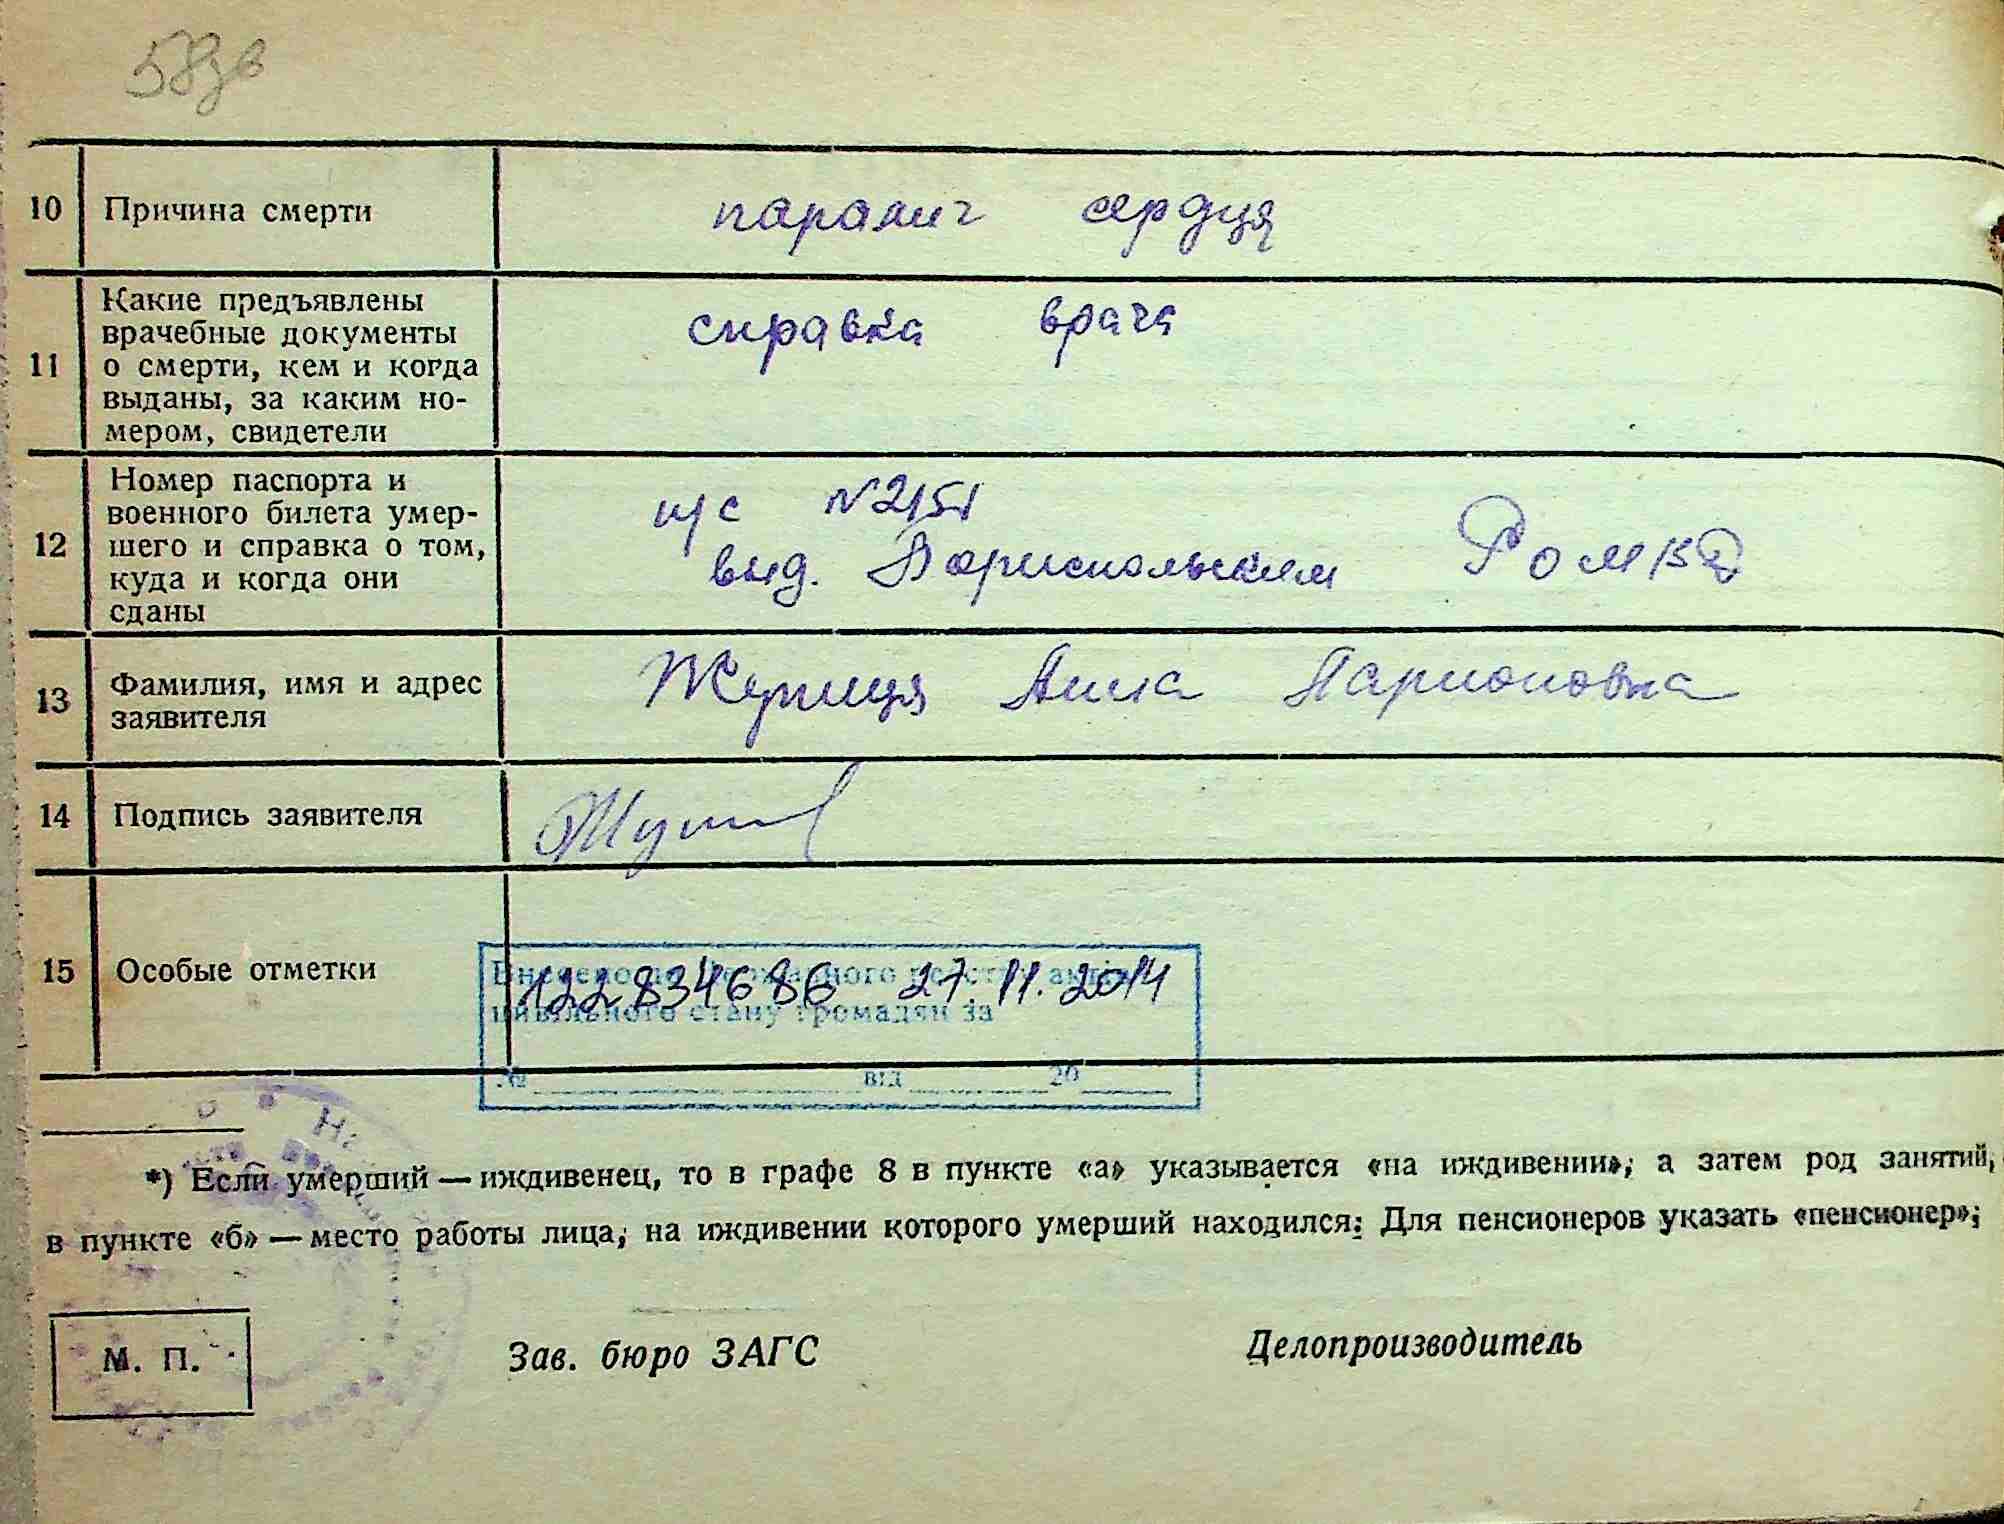 58зв
10 Причина смерти паралич сердця
11 Какие предъявлены
врачебные документы
о смерти, кем и когда
выданы, за каким но-
мером, свидетели
справка врача
12 Номер паспорта и
военного билета умер-
шего и справка о том,
куда и когда они
сданы
п/с №2151
выд. Бориспольским РОМВД
13 Фамилия, имя и адрес
заявителя
Анна Ларионовна
14 Подпись заявителя
15 Особые отметки
Внесено до Державного реєстру актів
цивільного стану громадян за
122834686 27.11.2014
№ від 20
*) Если умерший — иждивенец, то в графе 8 в пункте «а» указывается «на иждивении», а затем род занятий,
в пункте «б» — место работы лица, на иждивении которого умерший находился: Для пенсионеров указать «пенсионер»;
М. П. Зав. бюро ЗАГС Делопроизводитель